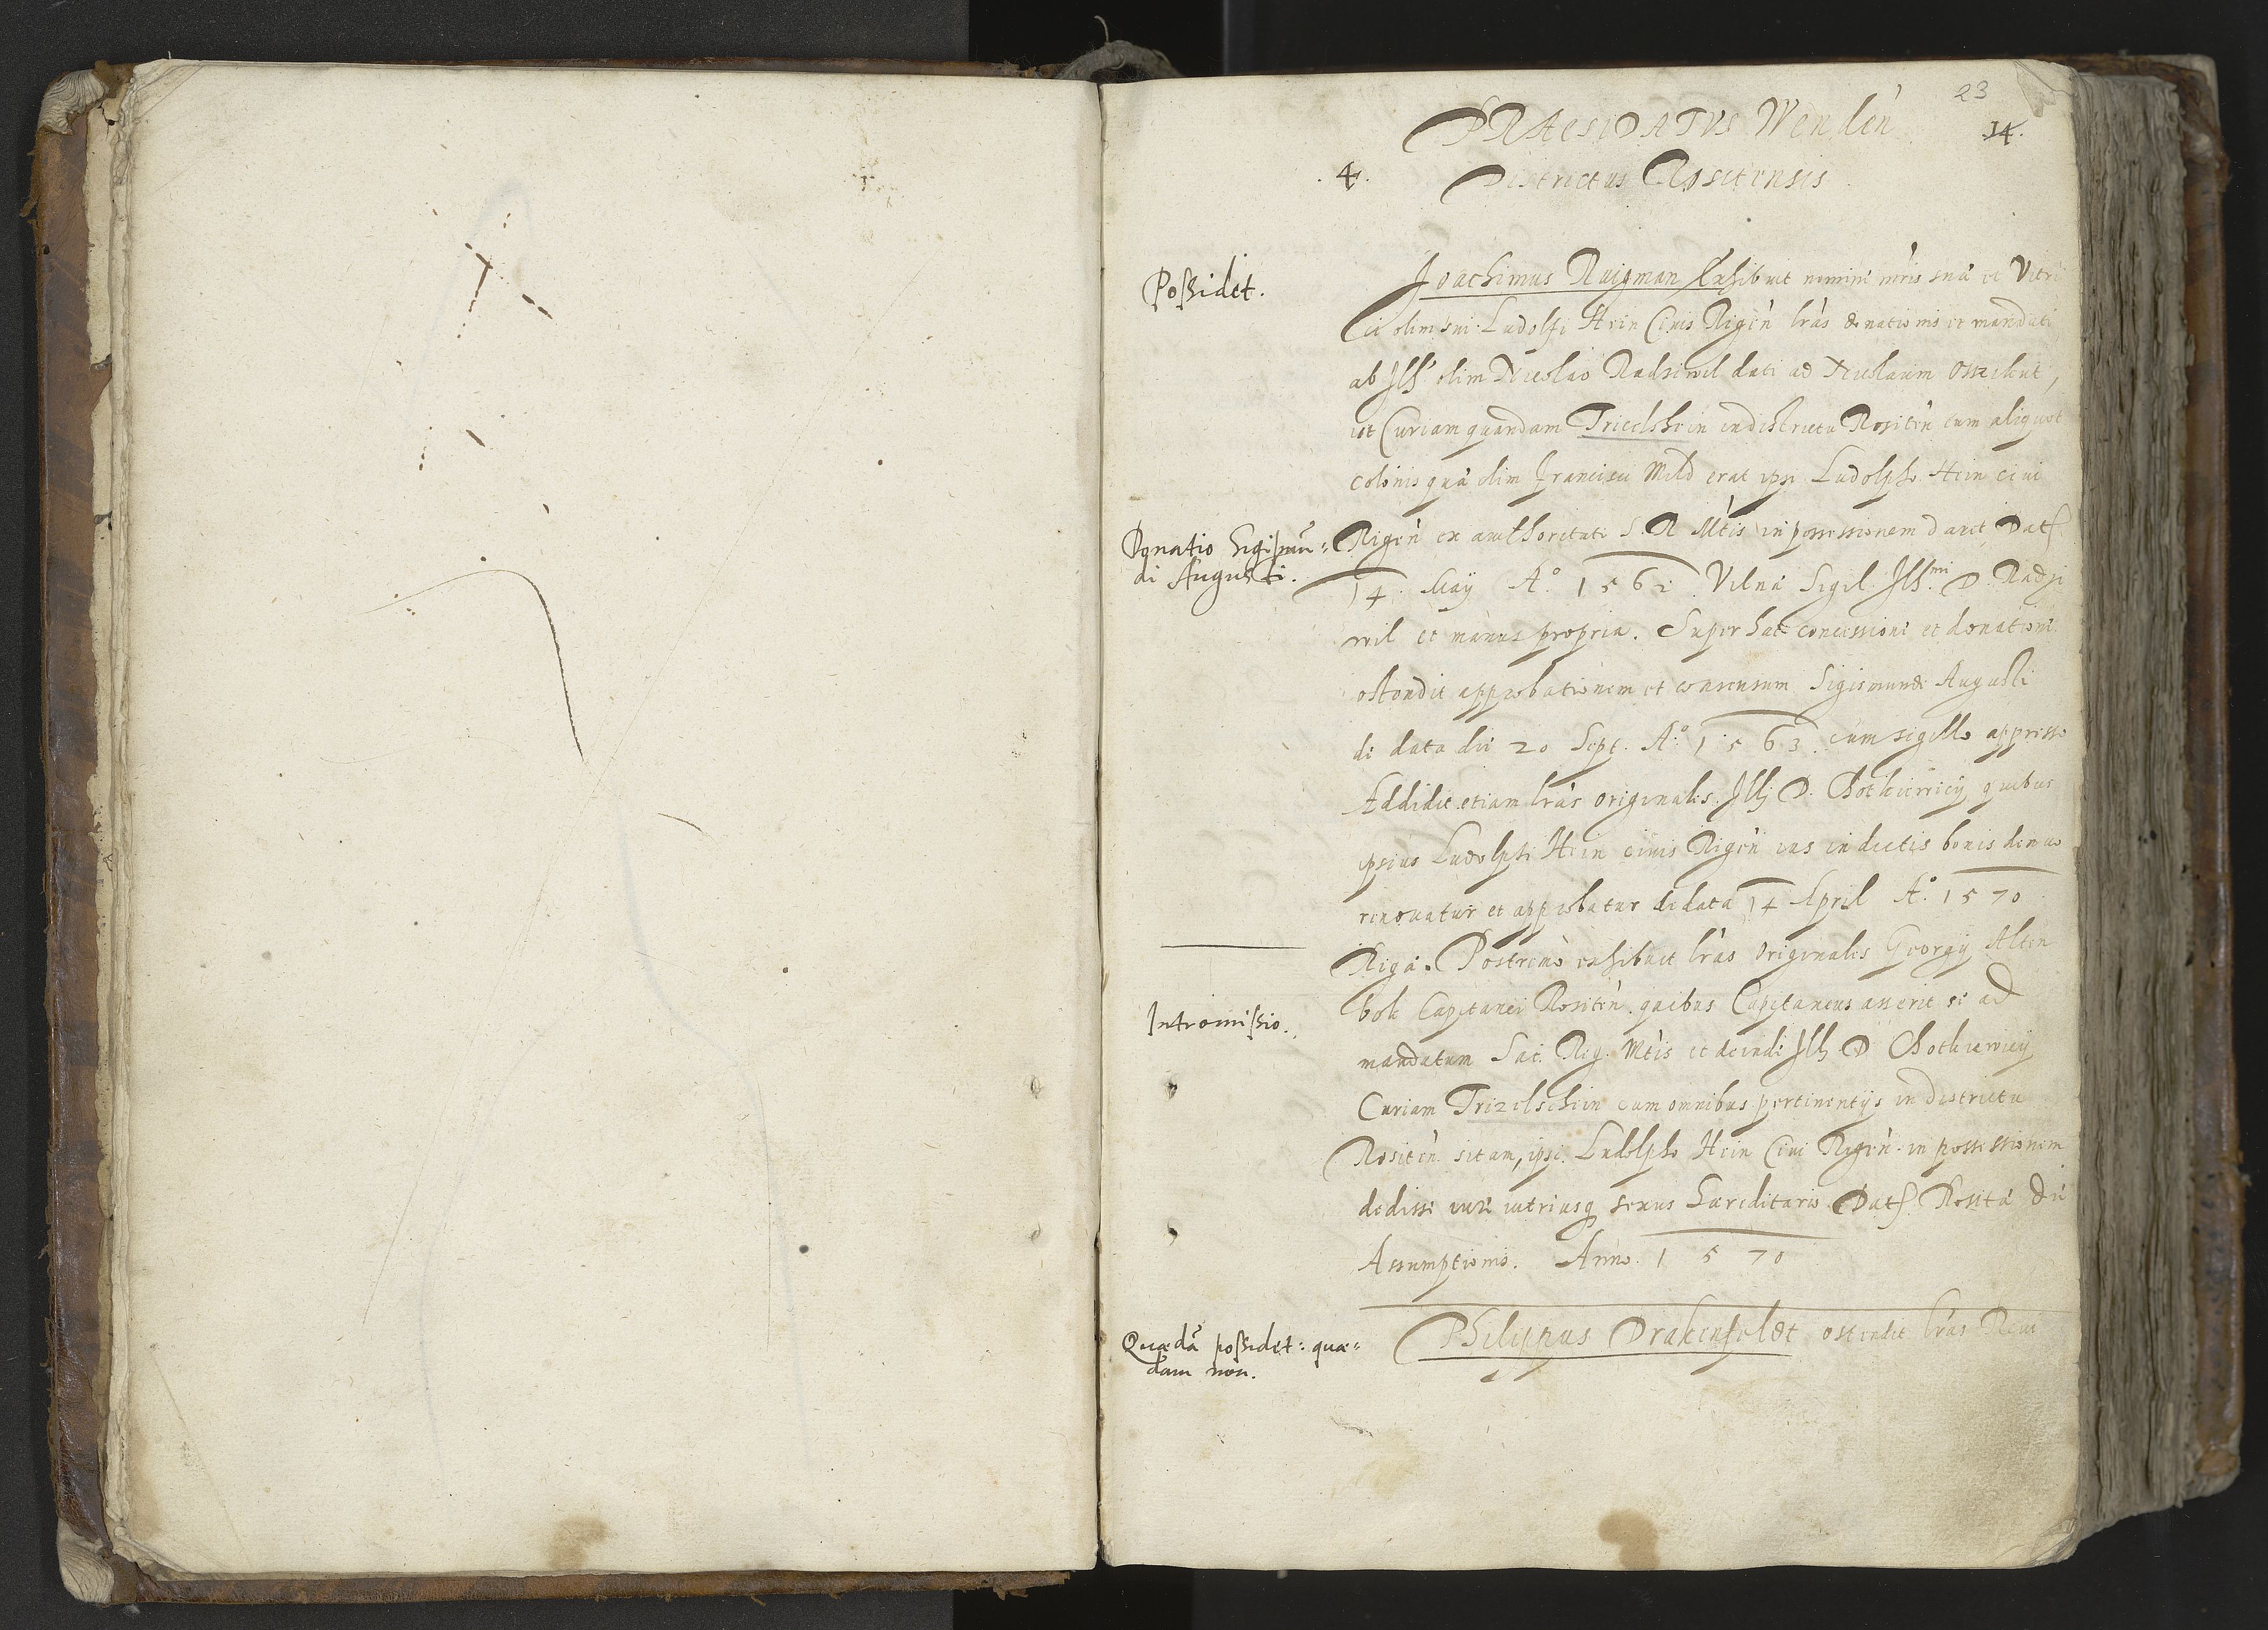 23
PRAesiDATVS Wenden̄
14.
4. Districtus Rositensis
Possidet.
Joachimus Ruigman Exhibuit nomine mr̄is suæ et Vitri
ci olim sui Ludolfi Hein Ciuis Rigen̄ lr̄as donationis et mandati
ab Jll. olim Nicolao Radziwil dati ad Nicolaum
ut Curiam quandam Tricelshein in districtu Rositen̄ cum aliquot
colonis quæ olim Francisci Mild erat ipsi Ludolpho Hein ciui
Donatio Sigismū=
di Augusti.
Rigen̄ ex authoritate S. R. Mt̄is in possessionem daret Dat
14. May Aº. 1562. Vilnæ Sigil. Jll.mi D. Radzi
wil et manus propria. Super hac concessione et donatione
ostendit approbationem et consensum Sigismundi Augusti
de data die 20 Sept. Aº. 1563. cum sigillo appresso
Addidit etiam lr̄as originales Jll. D. Chotkiewicij quibus
ipsius Ludolphi Hein ciuis Rigen̄ ius in dictis bonis denuo
renouatur et approbatur de data 14 April Aº. 1570
Rigæ. Postremò exhibuit lr̄as Originales Georgij Alten
bok Capitanei Rositen̄. quibus Capitaneus asserit se ad
Intromissio.
mandatum Sac. Reg. Mt̄is et deinde Jll. D. Chotkiewicij
Curiam Trizelschein cum omnibus pertinentijs in districtu
Rositen̄ sitam, ipsi Ludolpho Hein Ciui Rigen̄. in possessionem
dedisse iure utriusq sexus hæreditario. Dat. Rositæ die
Assumptionis. Anno. 1570
Quædā possidet: quæ=
dam non.
Philippus Drakenfeldt ostendit lr̄as